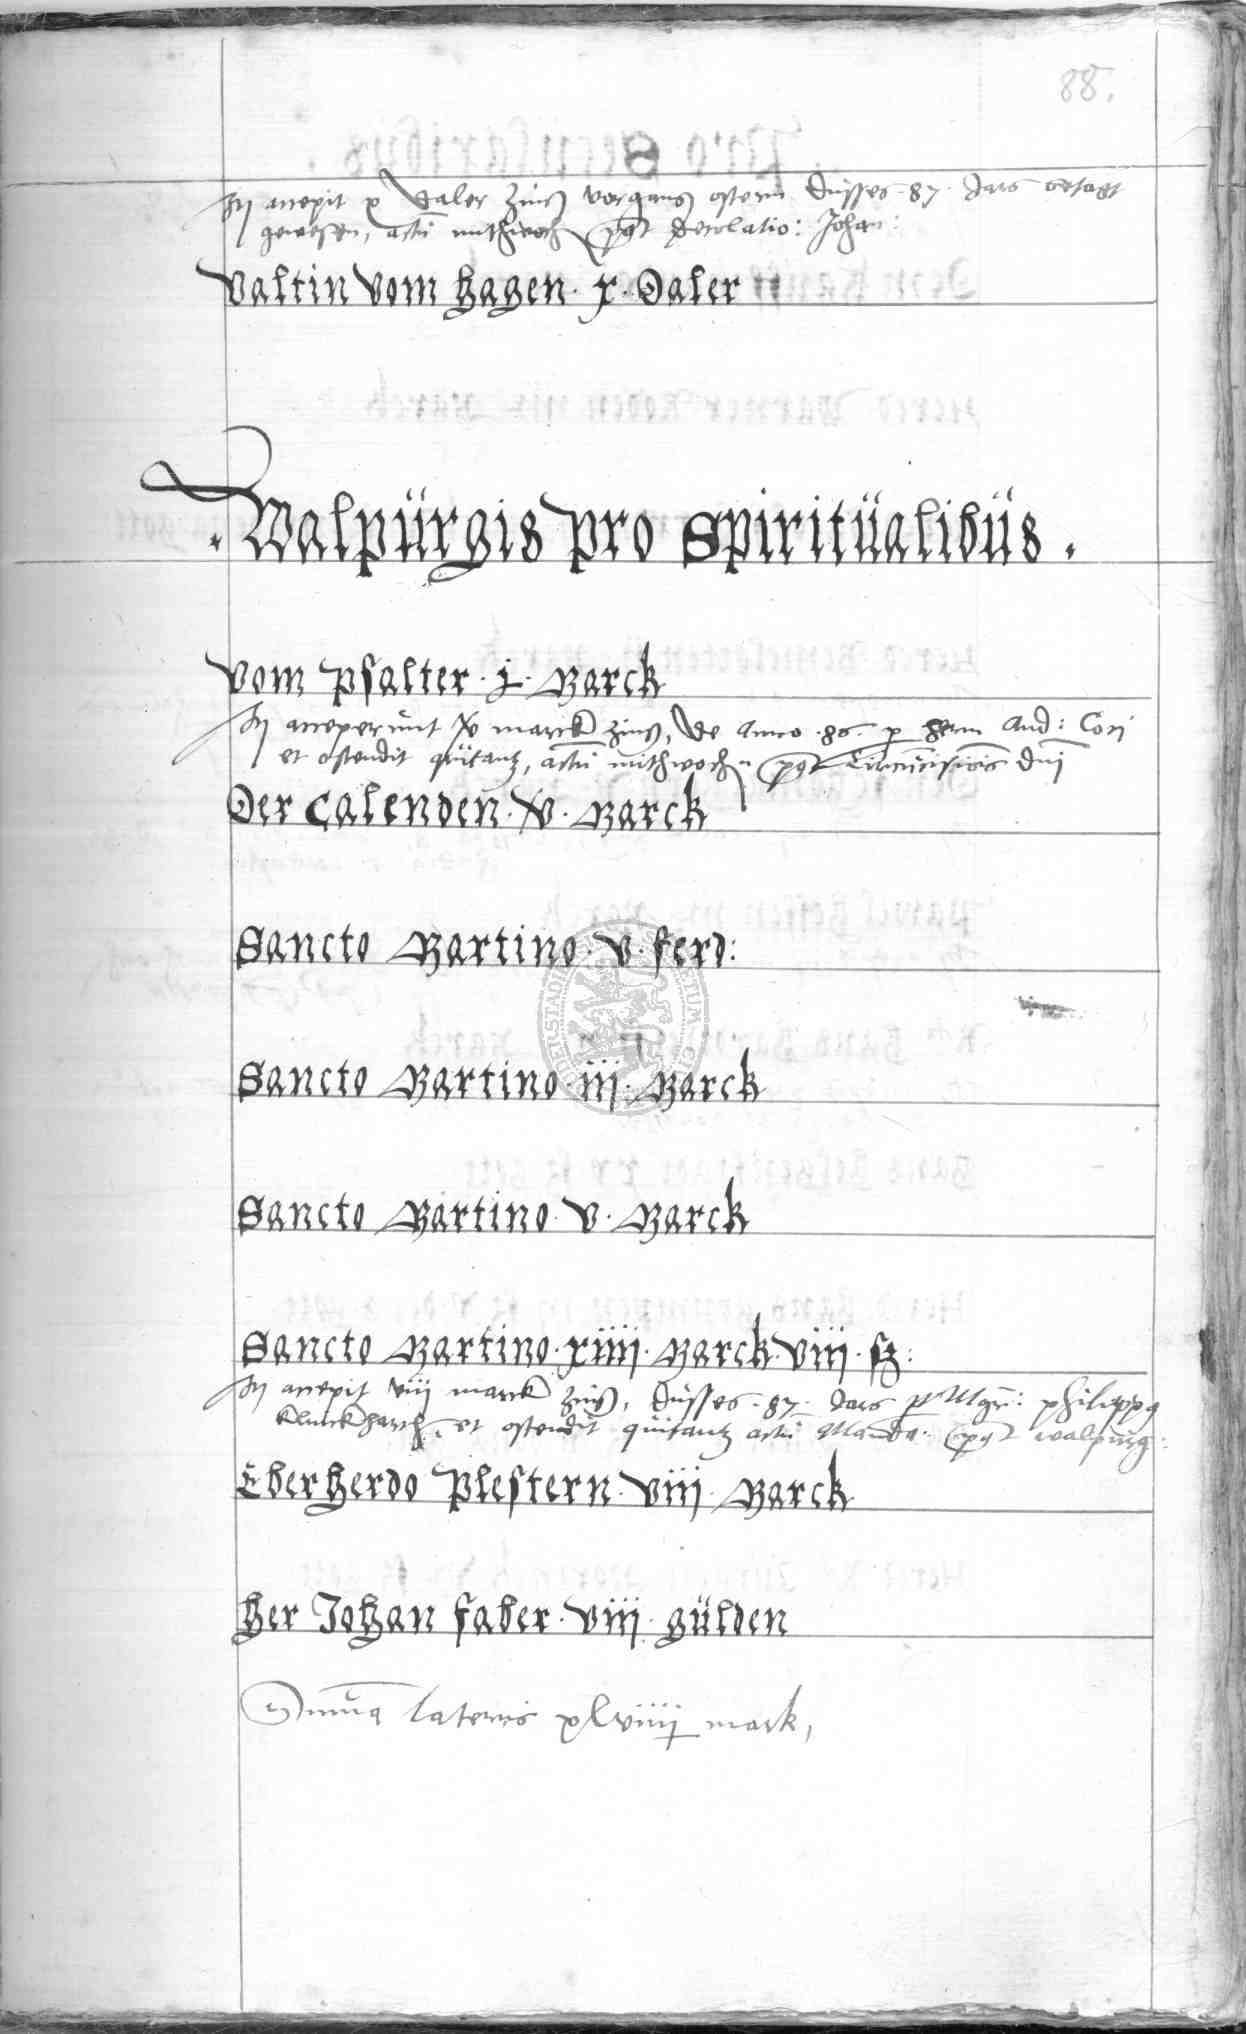 88.
accepit x Daler Zinß vorgangs ostern düsses .87. Jars betagt
gewesen, actū mithwoch post Decolatio: Johan:
Valtin vom Hagen . x . Daler
. Walpürgis pro Spiritüalibüs .
Vom Psalter . j . Marck
acceperunt v marck Zinß, de Anno .86. p hern And: Cori
et ostendit quitantz, actū mithwoch post Circūcisiōis dni
Der Calenden . v . Marck
Sancto Martino . v . ferd:
Sancto Martino . iij . Marck
Sancto Martino . v . Marck
Sancto Martino . xiiii . Marck . viii . ß:
accepit viij marck Zinß, düsses .87. Jars Mgr: philippq
et ostendit quitantz actū post walpurg:
Eberherdo Plestern . viii . Marck
Her Johan Faber . viii . gülden
Sūma lateris xlviiij mark,